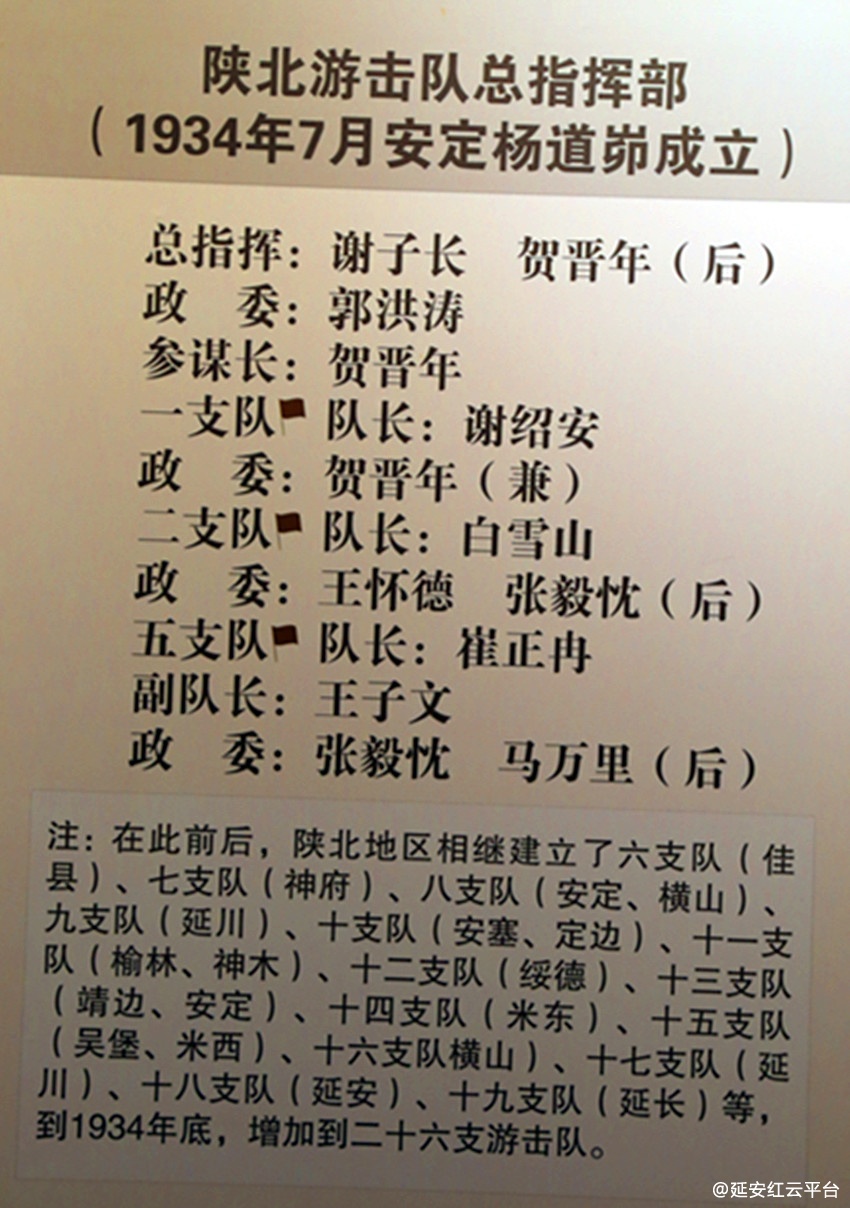 陕北游击队总指挥部
（1934年7月安定杨道峁成立）
总指挥：谢子长　贺晋年（后）
政　委：郭洪涛
参谋长：贺晋年
一支队 队长：谢绍安
政　委：贺晋年（兼）
二支队 队长：白雪山
政　委：王怀德　张毅忱（后）
五支队 队长：崔正冉
副队长：王子文
政　委：张毅忱　马万里（后）
注：在此前后，陕北地区相继建立了六支队（佳
县）、七支队（神府）、八支队（安定、横山）、
九支队（延川）、十支队（安塞、定边）、十一支
队（榆林、神木）、十二支队（绥德）、十三支队
（靖边、安定）、十四支队（米东）、十五支队
（吴堡、米西）、十六支队横山）、十七支队（延
川）、十八支队（延安）、十九支队（延长）等，
到1934年底，增加到二十六支游击队。
@延安红云平台